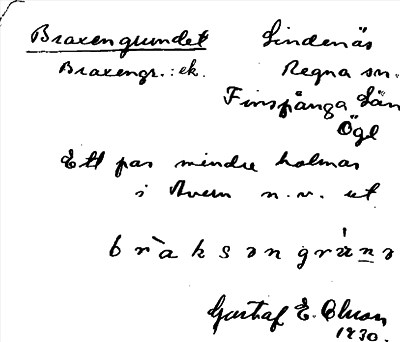 Braxengrundet Lindenäs
Braxengr.: ek. Regna sn.
Finspånga Län
Ögl
Ett par mindre holmar
i Avern n.v. ut
bràksəngrún̲ə
Gustaf E. Olson
1930.